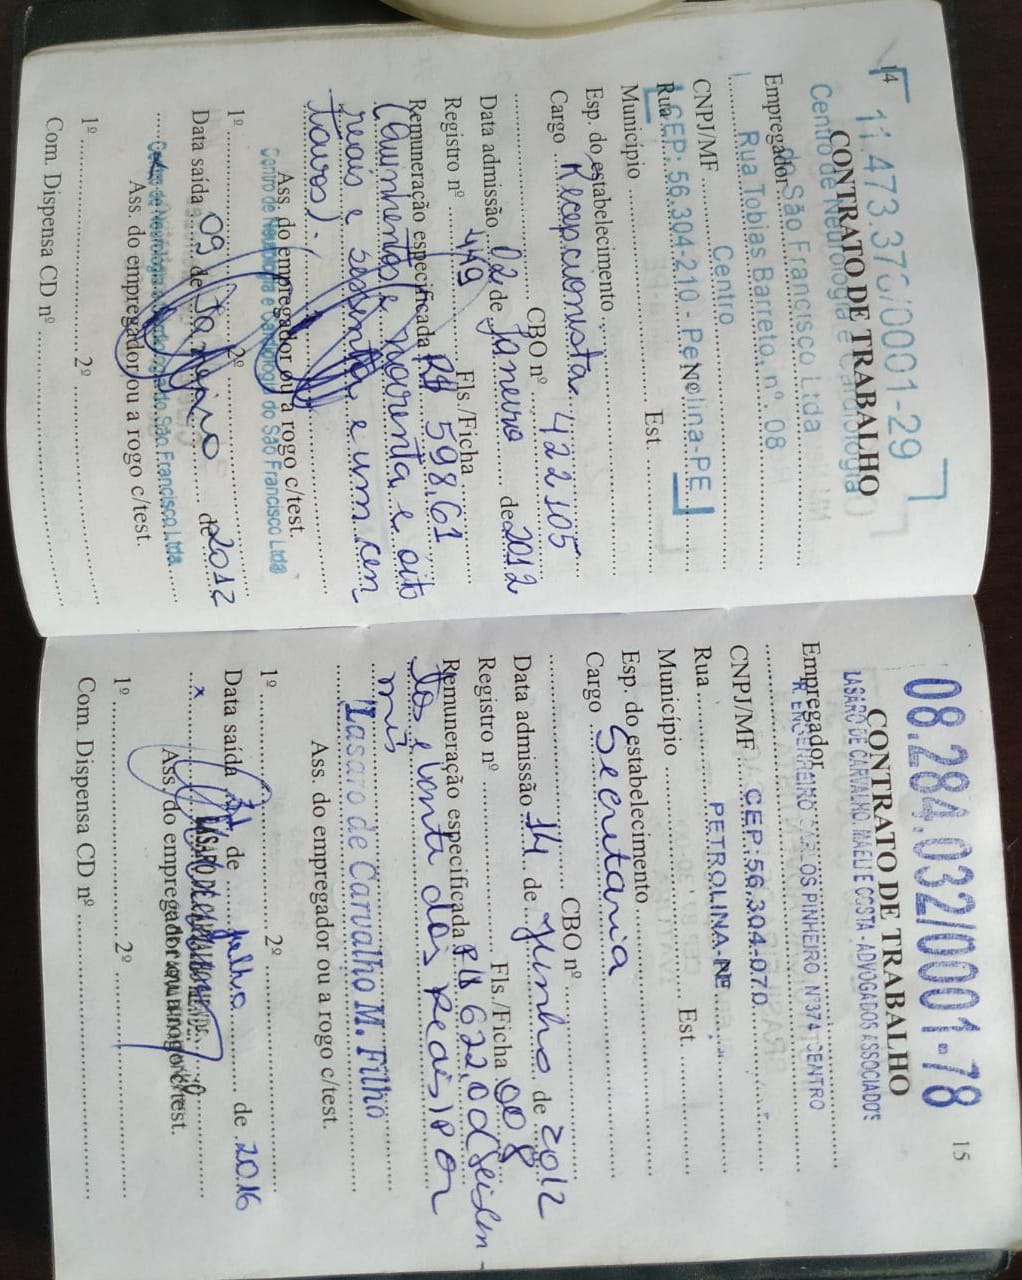 14
11.473.370/0001-29
CONTRATO DE TRABALHO
Centro de Neurologia e Cardiologia
Empregador do São Francisco Ltda.
Rua Tobias Barreto, nº. 08
CNPJ/MF Centro
Rua CEP: 56.304-210 - Petrolina-PE
Município Est.
Esp. do estabelecimento
Cargo Recepcionista 422105
CBO nº
Data admissão 02 de Janeiro de 2012
Registro nº 449 Fls./Ficha
Remuneração especificada R$ 598,61
(Quinhentos e noventa e oito
reais e sessenta e um cen
tavos).
Ass. do empregador ou a rogo c/test.
Centro de Neurologia e Cardiologia do São Francisco Ltda
1º 2º
Data saída 09 de Janeiro de 2012
Centro de Neurologia e Cardiologia do São Francisco Ltda.
Ass. do empregador ou a rogo c/test.
1º 2º
Com. Dispensa CD nº
15
08.284.032/0001-78
CONTRATO DE TRABALHO
LASARO DE CARVALHO, MAELI E COSTA - ADVOGADOS ASSOCIADOS
Empregador
R. ENGENHEIRO CARLOS PINHEIRO, Nº374 CENTRO
CNPJ/MF CEP:56.304-070
Rua PETROLINA-PE
Município Est.
Esp. do estabelecimento
Cargo Secretaria
CBO nº
Data admissão 14 de Junho de 2012
Registro nº Fls./Ficha 008
Remuneração especificada R$ 622,00 (Seiscen-
tos e vinte dois Reais) por
mês
Lasaro de Carvalho M. Filho
Ass. do empregador ou a rogo c/test.
1º 2º
Data saída de Julho de 2016
x
Ass. do empregador ou a rogo c/test.
1º 2º
Com. Dispensa CD nº